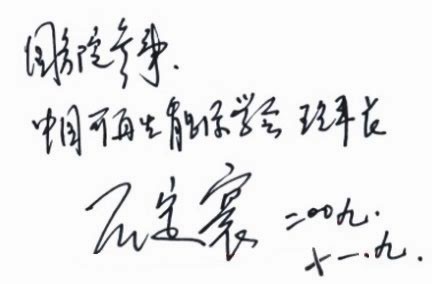 国务院参事.
中国可再生能源学会 理事长
石定寰 二〇〇九.
十一.九.